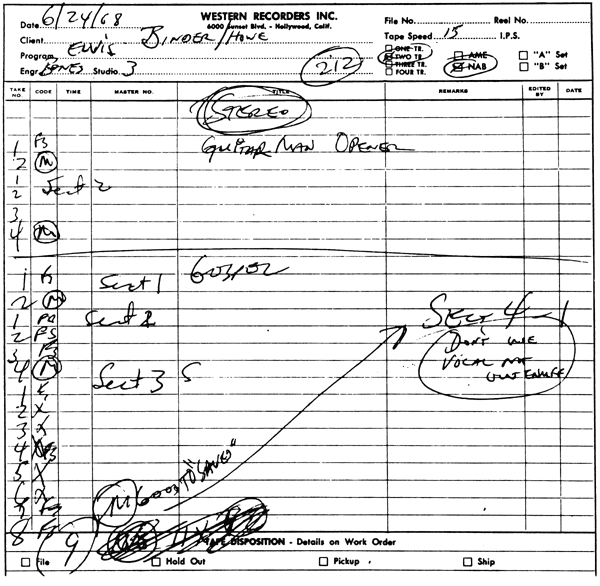 Date 6/24/68
WESTERN RECORDERS INC.
6000 Sunset Blvd. - Hollywood, Calif.
File No. Reel No.
Client BINDER/HOWE
Tape Speed 15 I.P.S.
Program ELVIS
ONE TR. AME "A" Set
TWO TR. NAB "B" Set
THREE TR.
FOUR TR.
Engr. JONES Studio 3
212
TAKE NO. CODE TIME MASTER NO. TITLE REMARKS EDITED BY DATE
STEREO
1 FS GUITAR MAN OPENER
2 M
1
2 Sect 2
3
4 M
1 Sect 1 GOSPEL
2 M
1 Sect 2 Sect 4
2 FS DON'T USE
3 FS VOCAL NOT
4 M Sect 3 S OUT ENUFF
1
2 X
3 X
4 FS
5 X
6 X
7 FS
M GOOD TO "SAVED"
8 FS
9
TAPE DISPOSITION - Details on Work Order
File Hold Out Pickup Ship